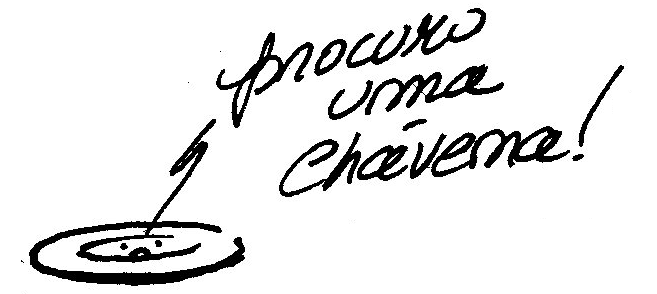 procuro
uma
chávena!